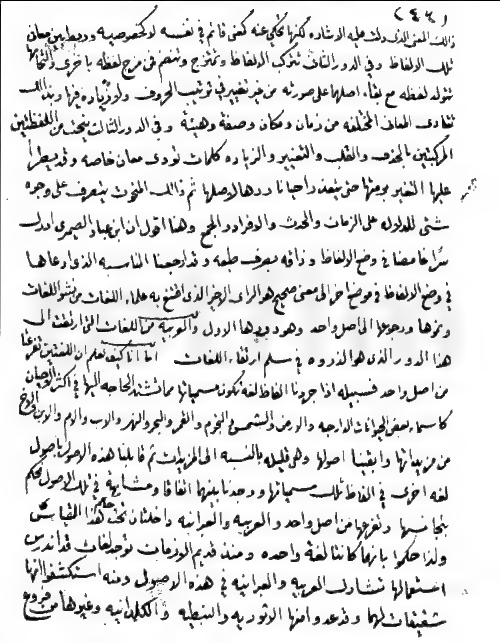 (٤٦)
ذالك المعنى الذى دلت عليه الاشاره لكنها تحكي عنه كمعنى قائم في نفسه له خصوصيه وربط بين معان
تلك الالفاظ وفي الدور الثاني تتركب الالفاظ وتمتزج وتنضم في مزج لفظه باخرى والتحامها
تتولد لفظه مع بقاء اصلها على صورته من غير تغيير في ترتيب الحروف ولا زياده فيها وبذالك
تتادى المعاني المختلفه من زمان ومكان وصفة وهيئة وفي الدور الثالث يتخذ من اللفظتين
المركبتين بالحذف والقلب والتغيير والزياده كلمات تودى معان خاصه وقد يطرأ
عليها التغير برمتها حتى يتعذر احيانا ردها لاصلها ثم ذالك المنحوت يتصرف على وجوه
شتى للدلوله على الزمان والحدث والافراد والجمع وهنا اقول ان ابن عباد الصيمرى ادرك
سرًا غامضا في وضع الالفاظ وذاقه بصرف طبعه وقد ارجعنا المناسبه الذى ادعاها
في وضع الالفاظ في موضع اخر الى معنى صحيح هو الراى الاخير الذى اقتنع به علماء اللغات من نشو اللغات
ونموها ورجوعها الى اصل واحد وهو دورها الاول والعربية من اللغات التى ارتقت الى
هذا الدور الذى هو الذروه في سلم ارتقاء اللغات اما انا كيف نعلم ان اللغتين تفرعتا
من اصل واحد فسبيله اذا جردنا الفاظ لغه تكون مسمياتها مما تشتد الحاجه اليها في اكثر الاحيان
كاسماء بعض الحيوانات الدارجه والارض والشمس والنجوم والقمر والبحر والنهر والاب والام والابن الزوج
من مزيداتها وابقينا اصولها وهي قليله بالنسبه الى المزيدات ثم قابلنا هذه الاصول باصول
لغه اخرى في الفاظ تلك مسمياتها ووجدنا بينها اتفاقا ومشابهة في تلك الاصول نحكم
بتجانسها وتفرعها من اصل واحد والعربيه والعبرانيه داخلتان تحت حكم هذا القياس
ولذا حكموا بانهما كانتا لغة واحده ومنذ قديم الازمان توجد لغات قد اندرس
استعمالها تشارك العربيه والعبرانيه في هذه الاصول ومنه استكشفوا انها
شقيقات لهما وقد عدوا منها الاثوريه والنبطيه والكلدانيه وغيرها من فروع